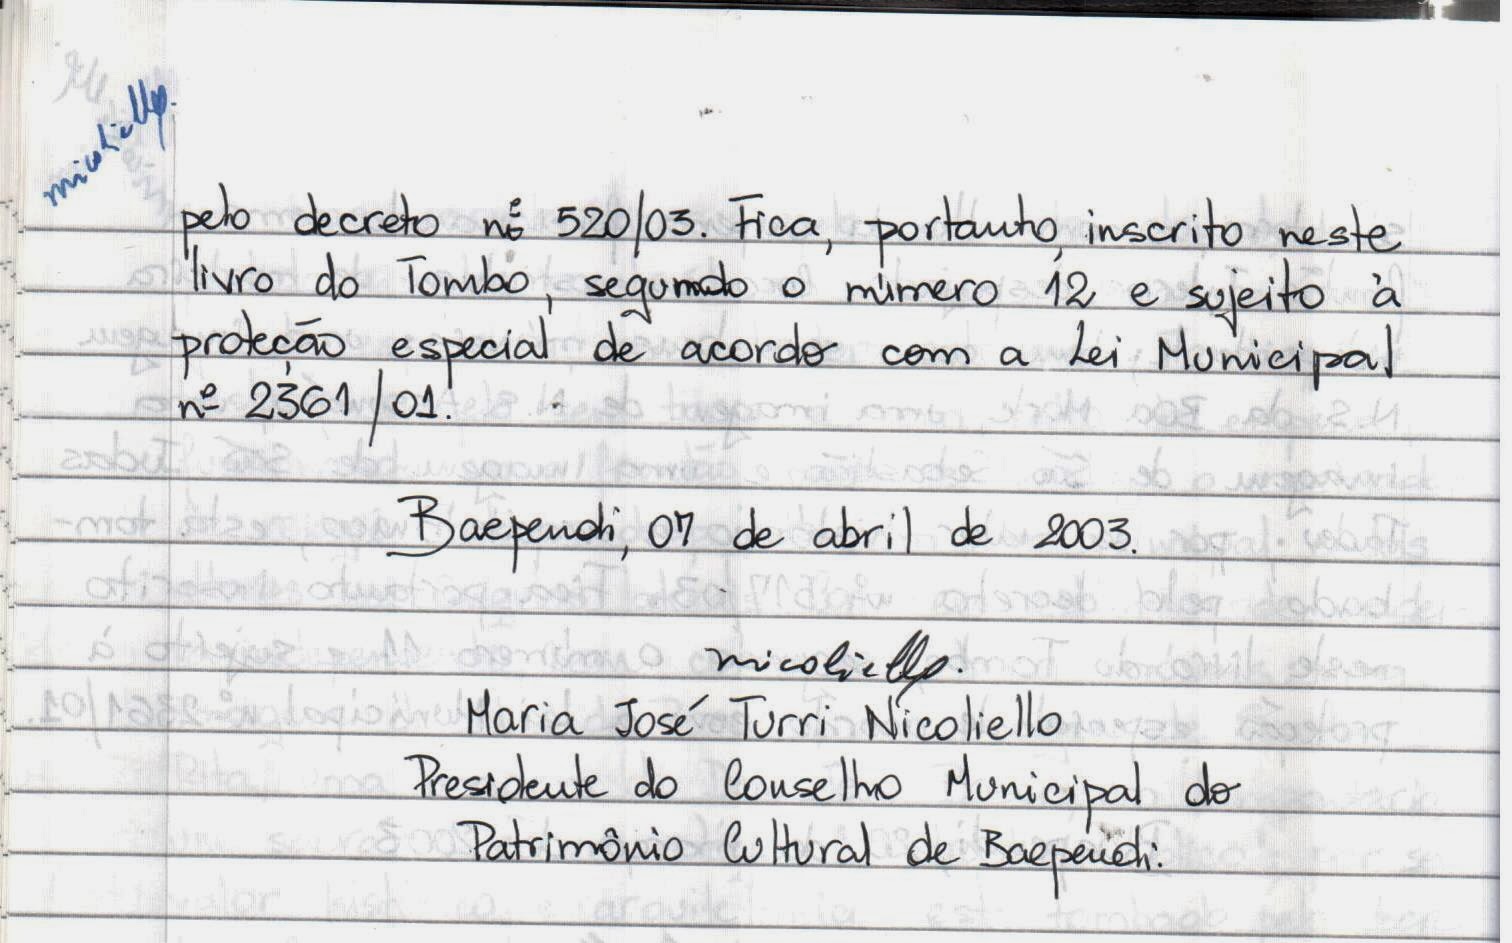 nicoliello.
pelo decreto nº 520/03. Fica, portanto, inscrito neste
livro do Tombo, segundo o número 12 e sujeito à
proteção especial de acordo com a Lei Municipal
nº 2361/01.
Baependi, 07 de abril de 2003.
nicoliello.
Maria José Turri Nicoliello
Presidente do Conselho Municipal do
Patrimônio Cultural de Baependi.